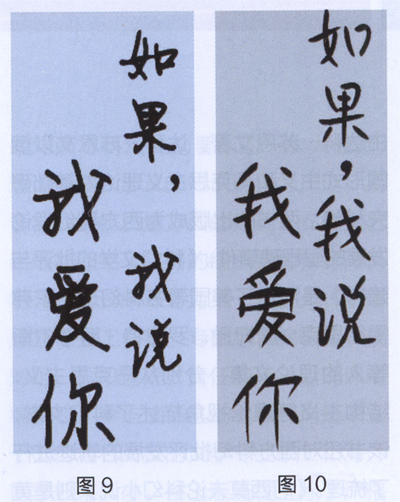 如果，我说
我爱你
如果，我说
我爱你
图9
图10